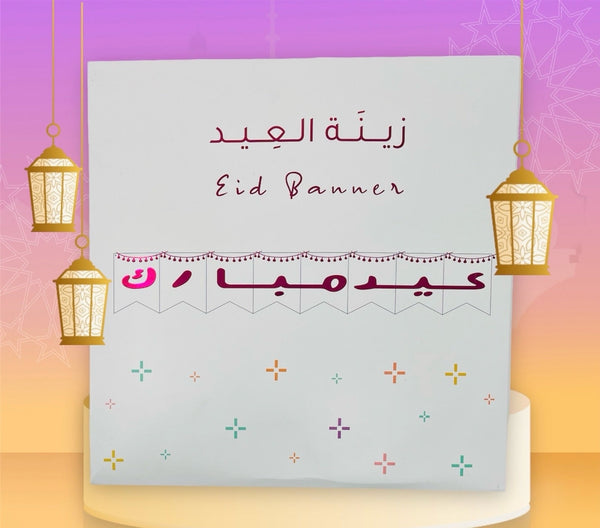 زينَة العِيد
Eid Banner
عيد مبارك